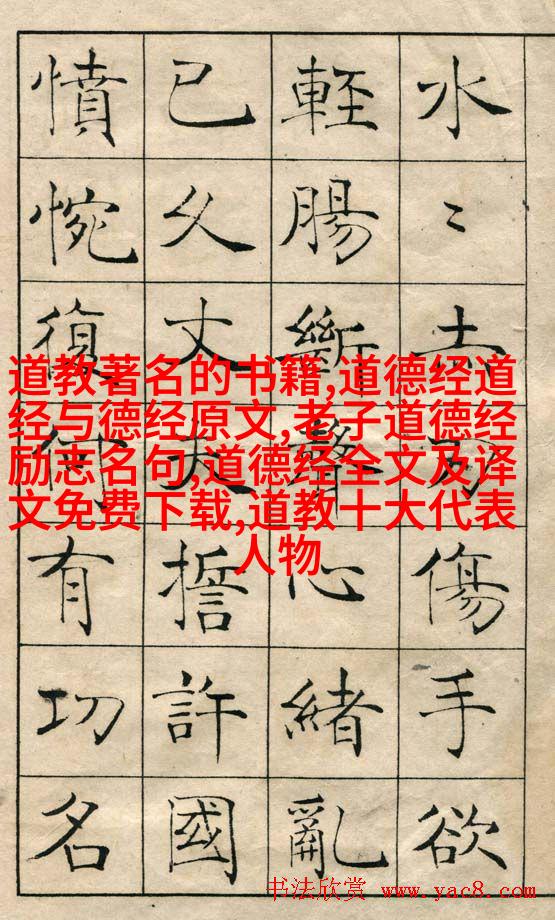 水〻傷手欲
輕腸斷聲心緒亂
已久丈夫誓許國
憤惋復何有功名
道教著名的书籍,道德经道
经与德经原文,老子道德经
励志名句,道德经全文及译
文免费下载,道教十大代表
人物
书法欣赏 www.yac8.com